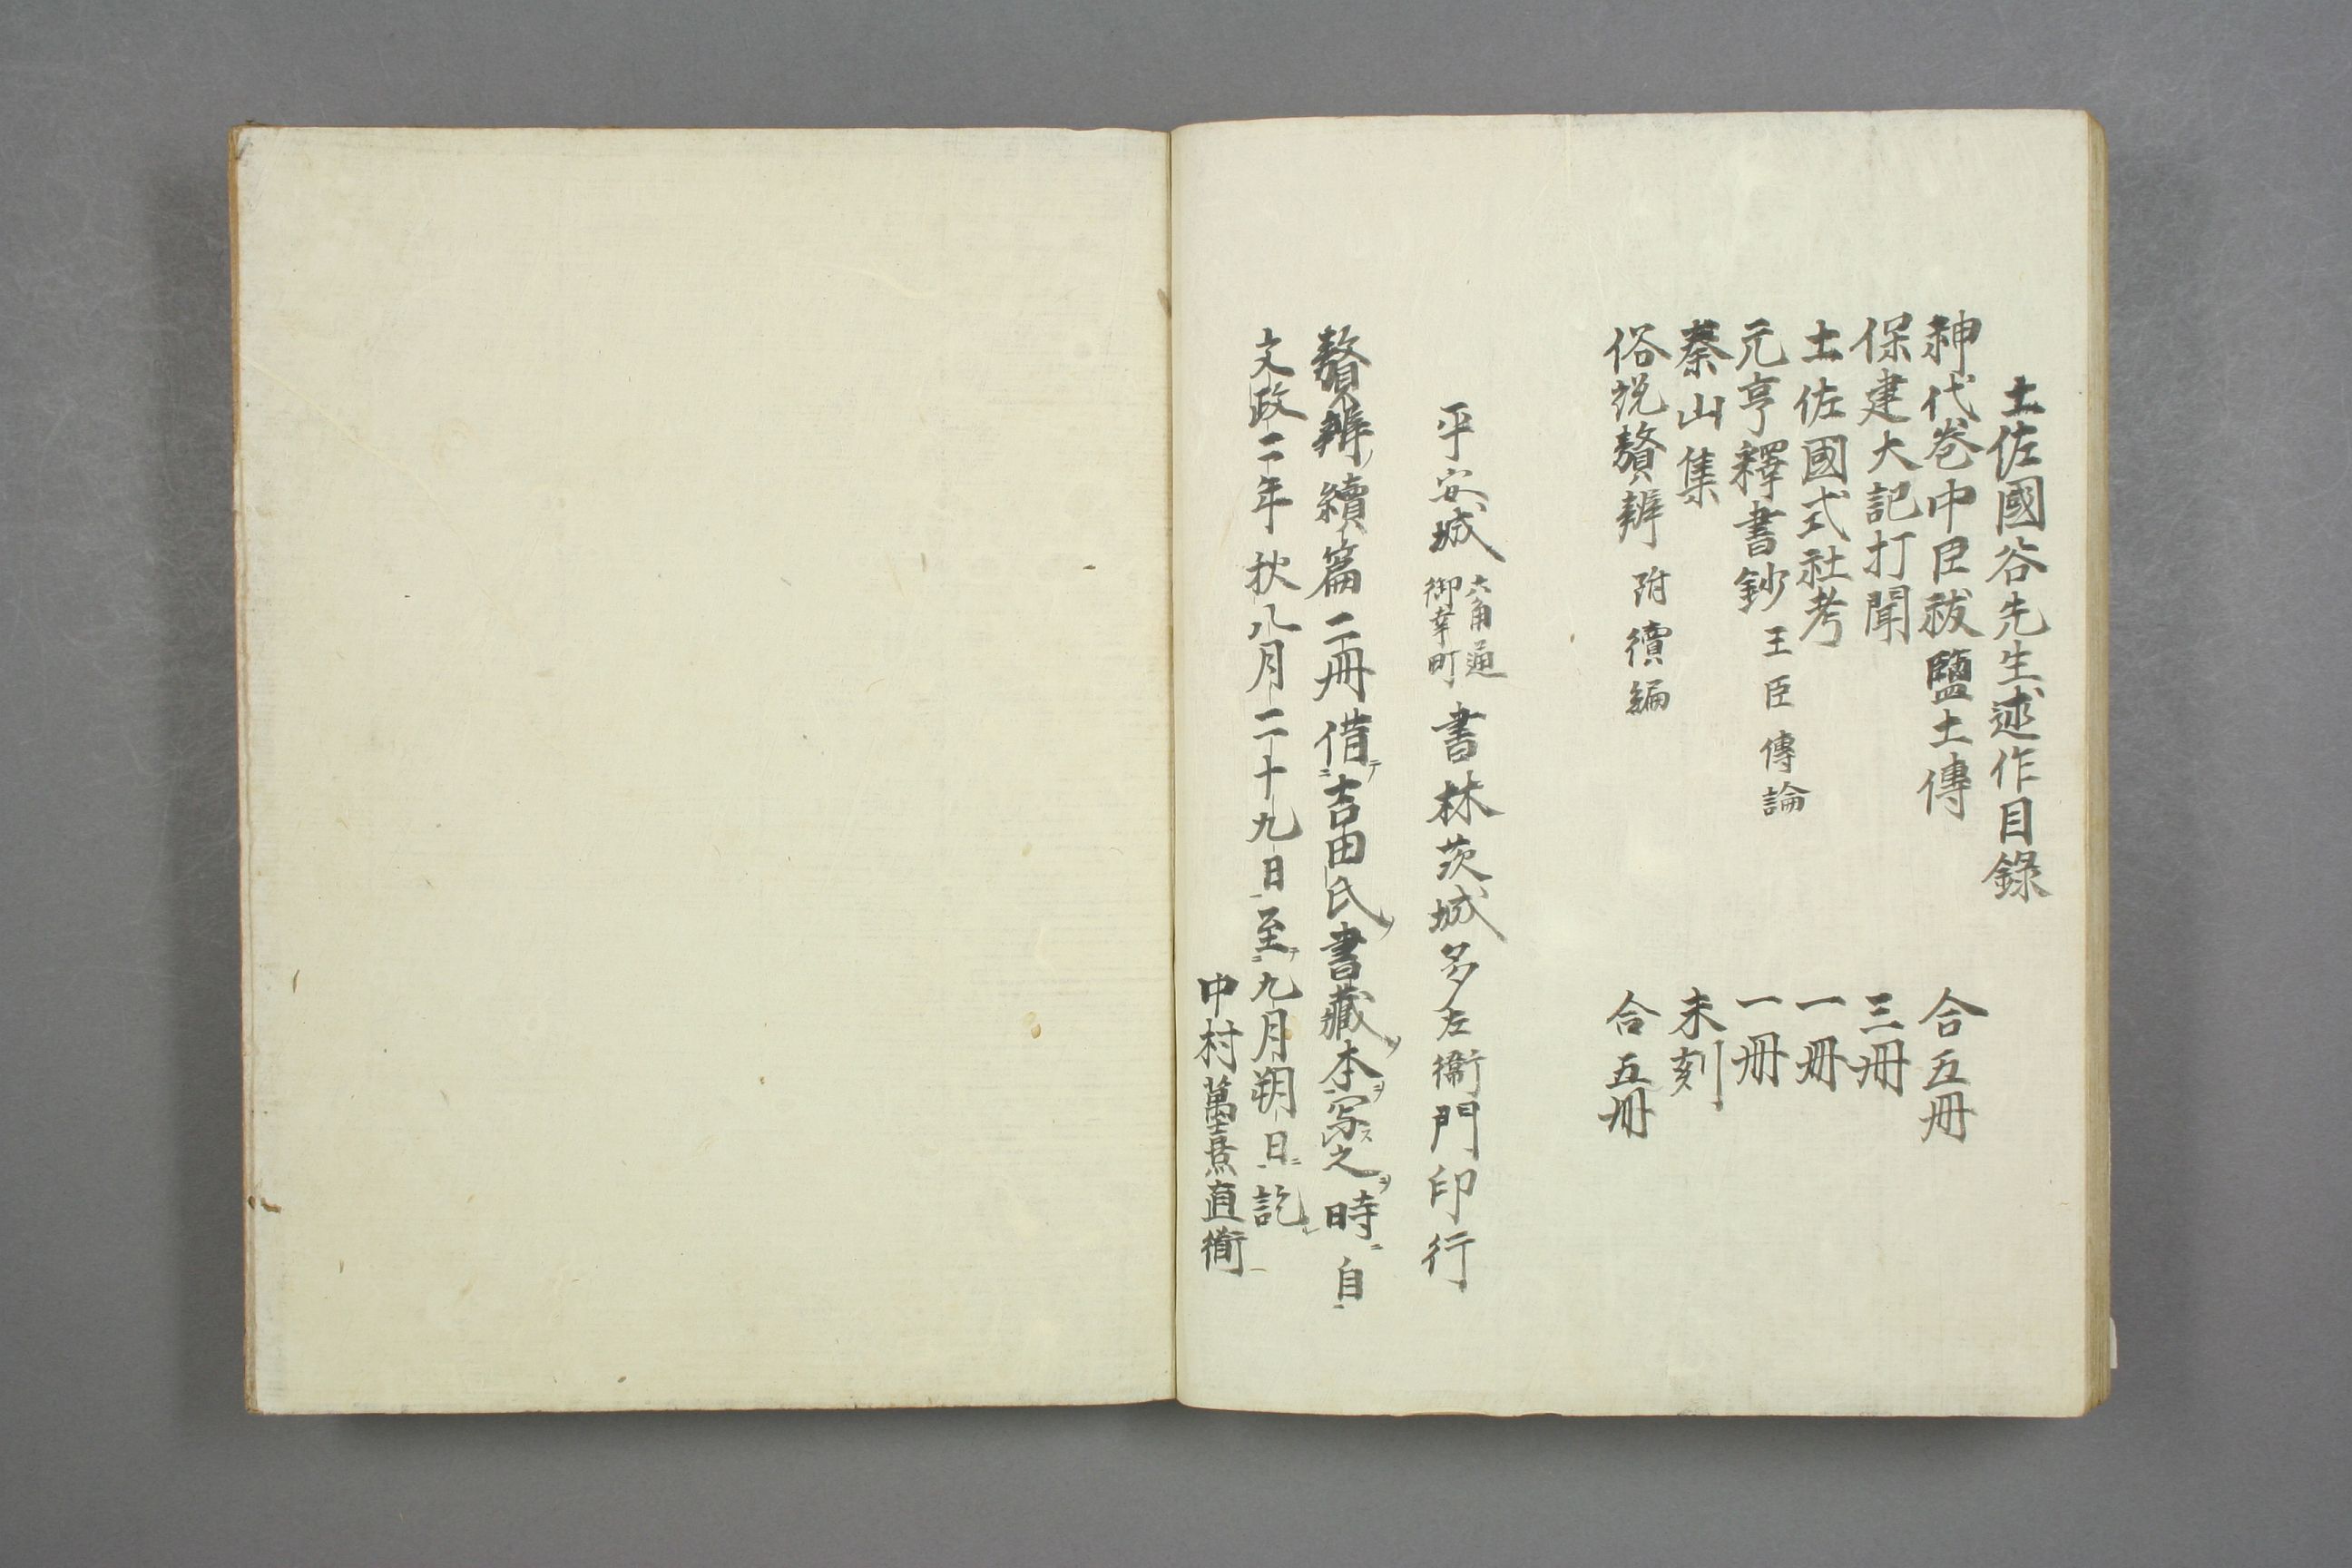 土佐國谷先生述作目錄
神代巻中臣祓鹽土傳　合五冊
保建大記打聞　三冊
土佐國式社考　一冊
元亨釋書鈔 王臣傳論　一冊
秦山集　未刻
俗説贅辨 附續編　合五冊
平安城 六角通 御幸町 書林茨城多左衞門印行
贅辨續篇二冊借テ吉田氏ノ書藏ノ本ヲ写ス之ヲ時ニ自
文政二年秋八月二十九日至テ九月朔日ニ訖
中村萬喜直衛